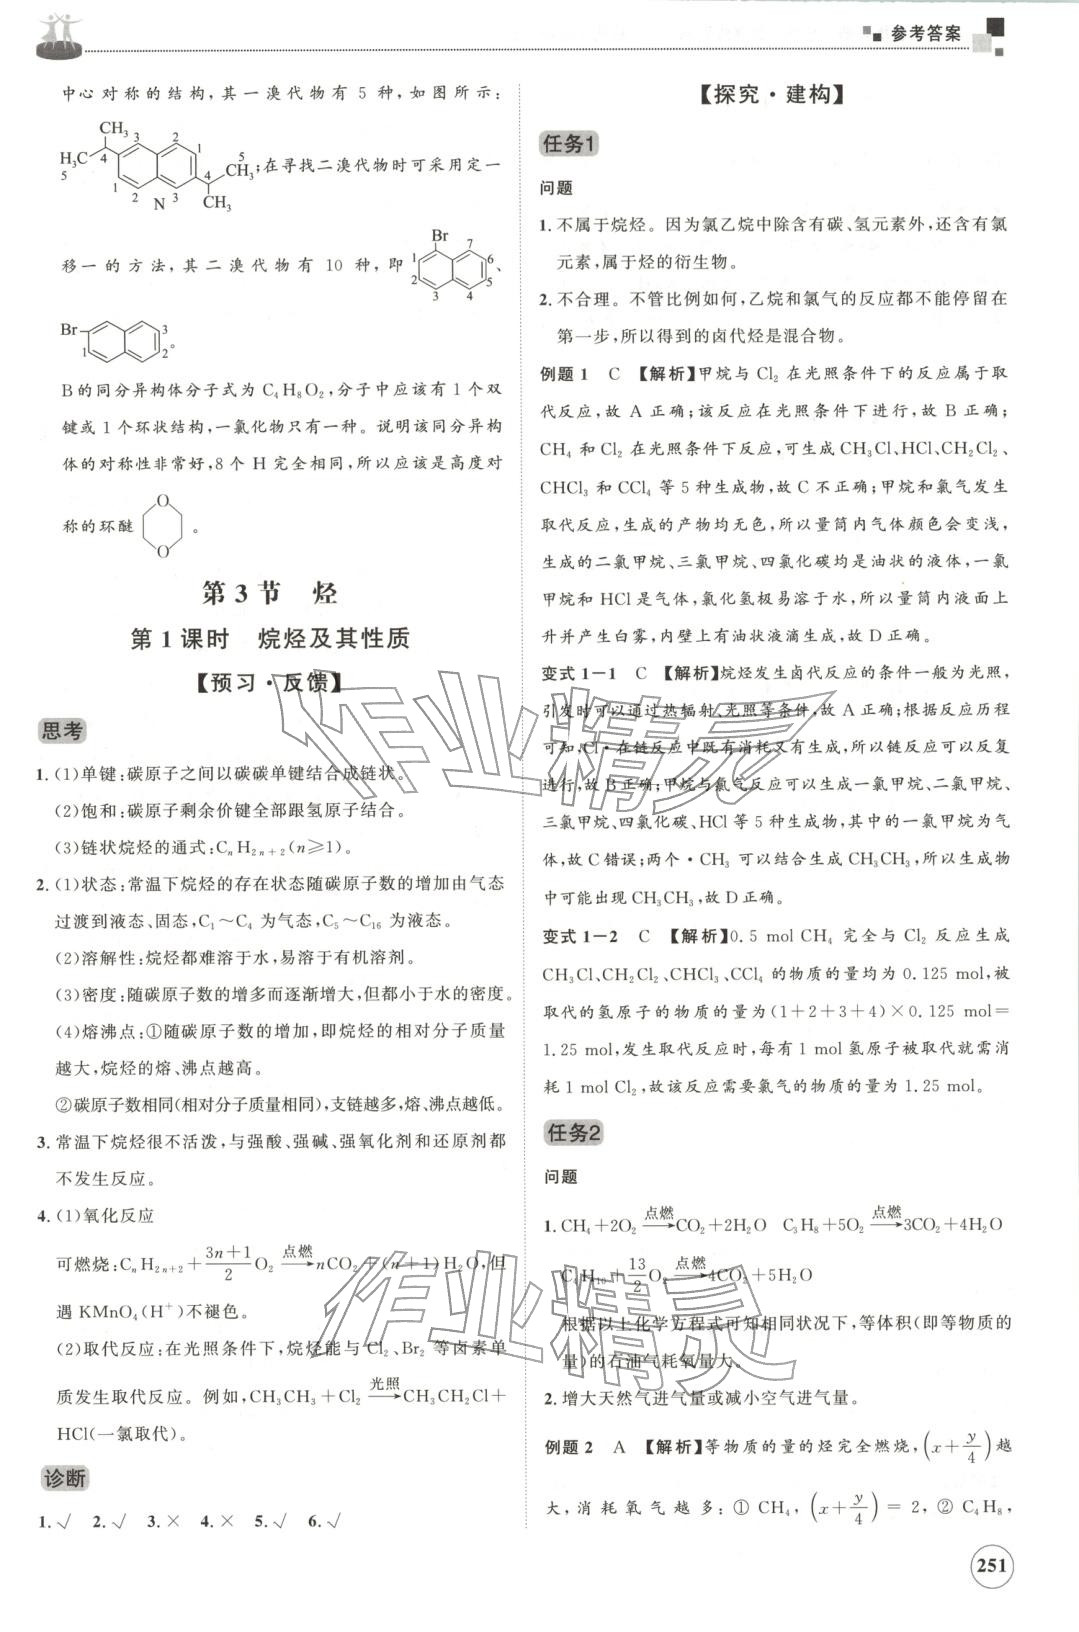 参考答案
中心对称的结构,其一溴代物有5种,如图所示:
CH₃ 3 2
H₃C 4 1 5
5 CH₃;在寻找二溴代物时可采用定一
1 2 3 4
N CH₃
Br
移一的方法,其二溴代物有10种,即 1 2 3 4 5 6 7 、
Br 1 3 2。
B的同分异构体分子式为C₄H₈O₂,分子中应该有1个双
键或1个环状结构,一氯化物只有一种。说明该同分异构
体的对称性非常好,8个H完全相同,所以应该是高度对
称的环醚 O O 。
第3节 烃
第1课时 烷烃及其性质
【预习·反馈】
思考
1. (1)单键:碳原子之间以碳碳单键结合成链状。
(2)饱和:碳原子剩余价键全部跟氢原子结合。
(3)链状烷烃的通式:CₙH₂ₙ₊₂(n≥1)。
2. (1)状态:常温下烷烃的存在状态随碳原子数的增加由气态
过渡到液态、固态,C₁~C₄为气态,C₅~C₁₆为液态。
(2)溶解性:烷烃都难溶于水,易溶于有机溶剂。
(3)密度:随碳原子数的增多而逐渐增大,但都小于水的密度。
(4)熔沸点:①随碳原子数的增加,即烷烃的相对分子质量
越大,烷烃的熔、沸点越高。
②碳原子数相同(相对分子质量相同),支链越多,熔、沸点越低。
3. 常温下烷烃很不活泼,与强酸、强碱、强氧化剂和还原剂都
不发生反应。
4. (1)氧化反应
可燃烧:CₙH₂ₙ₊₂+(3n+1)/2 O₂ 点燃→ nCO₂+(n+1)H₂O,但
遇KMnO₄(H⁺)不褪色。
(2)取代反应:在光照条件下,烷烃能与Cl₂、Br₂等卤素单
质发生取代反应。例如,CH₃CH₃+Cl₂ 光照→ CH₃CH₂Cl+
HCl(一氯取代)。
诊断
1. √ 2. √ 3. × 4. × 5. √ 6. √
【探究·建构】
任务1
问题
1. 不属于烷烃。因为氯乙烷中除含有碳、氢元素外,还含有氯
元素,属于烃的衍生物。
2. 不合理。不管比例如何,乙烷和氯气的反应都不能停留在
第一步,所以得到的卤代烃是混合物。
例题1 C 【解析】甲烷与Cl₂在光照条件下的反应属于取
代反应,故A正确;该反应在光照条件下进行,故B正确;
CH₄和Cl₂在光照条件下反应,可生成CH₃Cl、HCl、CH₂Cl₂、
CHCl₃和CCl₄等5种生成物,故C不正确;甲烷和氯气发生
取代反应,生成的产物均无色,所以量筒内气体颜色会变浅,
生成的二氯甲烷、三氯甲烷、四氯化碳均是油状的液体,一氯
甲烷和HCl是气体,氯化氢极易溶于水,所以量筒内液面上
升并产生白雾,内壁上有油状液滴生成,故D正确。
变式1-1 C 【解析】烷烃发生卤代反应的条件一般为光照,
引发时可以通过热辐射、光照等条件,故A正确;根据反应历程
可知,Cl·在链反应中既有消耗又有生成,所以链反应可以反复
进行,故B正确;甲烷与氯气反应可以生成一氯甲烷、二氯甲烷、
三氯甲烷、四氯化碳、HCl等5种生成物,其中的一氯甲烷为气
体,故C错误;两个·CH₃可以结合生成CH₃CH₃,所以生成物
中可能出现CH₃CH₃,故D正确。
变式1-2 C 【解析】0.5 mol CH₄完全与Cl₂反应生成
CH₃Cl、CH₂Cl₂、CHCl₃、CCl₄的物质的量均为0.125 mol,被
取代的氢原子的物质的量为(1+2+3+4)×0.125 mol=
1.25 mol,发生取代反应时,每有1 mol氢原子被取代就需消
耗1 mol Cl₂,故该反应需要氯气的物质的量为1.25 mol。
任务2
问题
1. CH₄+2O₂ 点燃→ CO₂+2H₂O C₃H₈+5O₂ 点燃→ 3CO₂+4H₂O
C₄H₁₀+13/2 O₂ 点燃→ 4CO₂+5H₂O
根据以上化学方程式可知相同状况下,等体积(即等物质的
量)的石油气耗氧量大。
2. 增大天然气进气量或减小空气进气量。
例题2 A 【解析】等物质的量的烃完全燃烧,(x+y/4)越
大,消耗氧气越多:①CH₄,(x+y/4)=2,②C₄H₈,
251
作业精灵
作业精灵